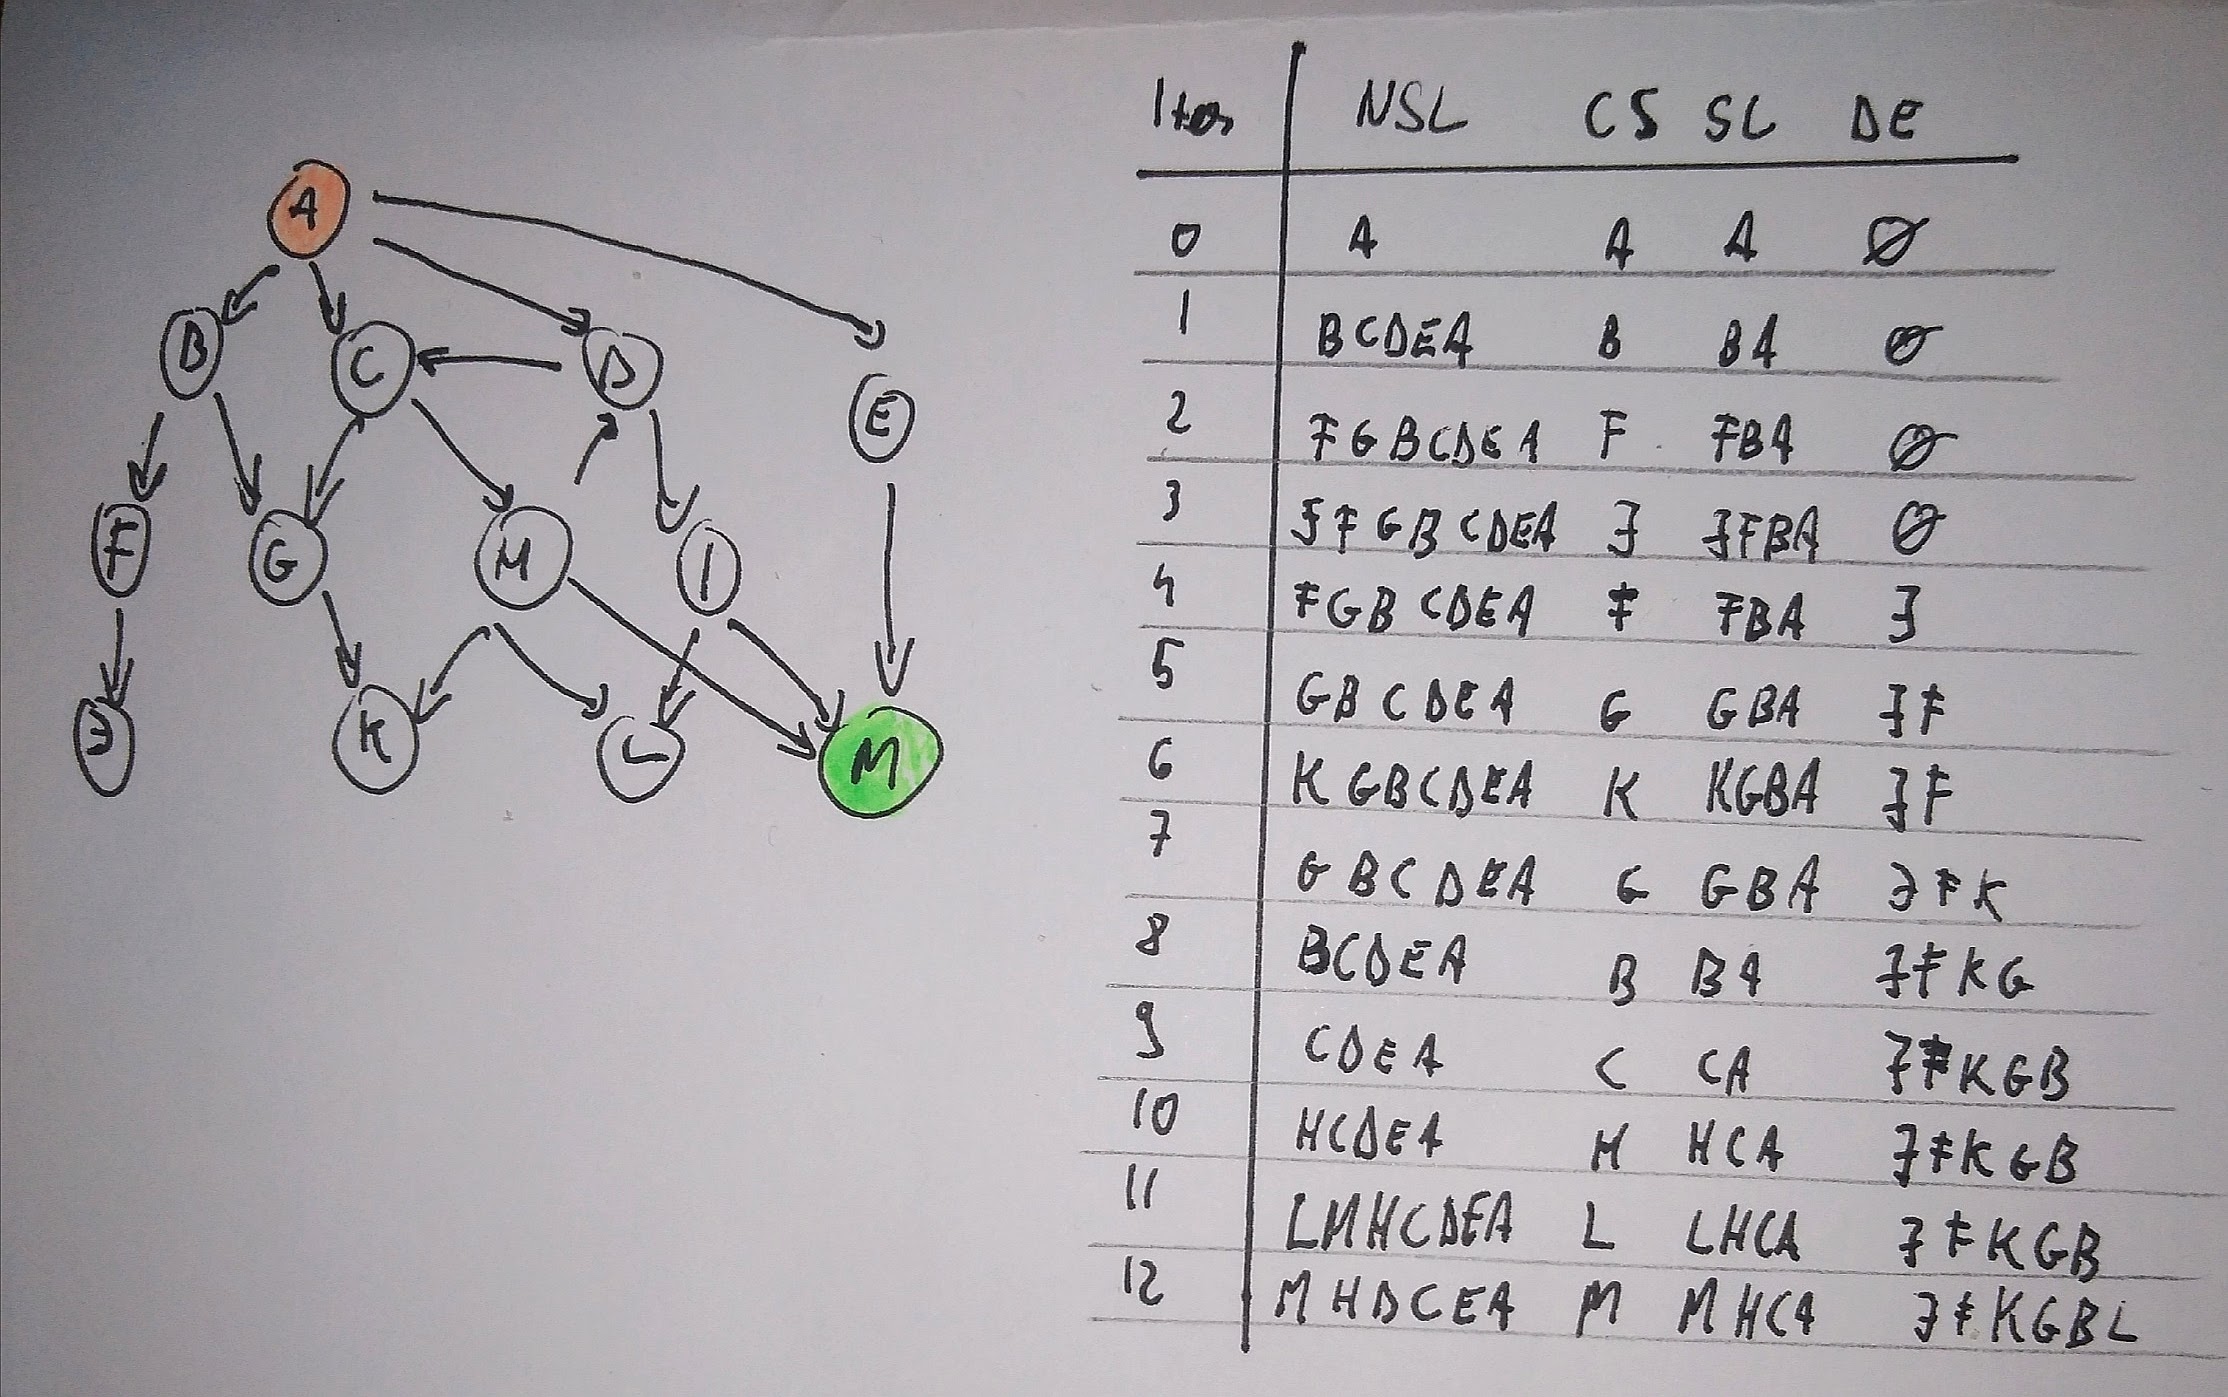 A
B C D E
F G H I
J K L M
Iter NSL CS SL DE
0 A A A Ø
1 BCDEA B BA Ø
2 FGBCDEA F FBA Ø
3 JFGBCDEA J JFBA Ø
4 FGBCDEA F FBA J
5 GBCDEA G GBA JF
6 KGBCDEA K KGBA JF
7 GBCDEA G GBA JFK
8 BCDEA B BA JFKG
9 CDEA C CA JFKGB
10 HCDEA H HCA JFKGB
11 LMHCDEA L LHCA JFKGB
12 MHDCEA M MHCA JFKGBL